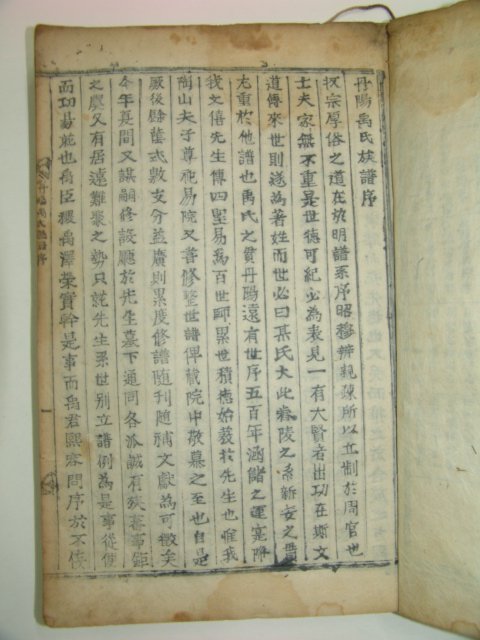 丹陽禹氏族譜序
收宗厚俗之道在於明譜系序昭穆辨親疎所以立制於周官也
士夫家無不重是世德可紀必為表見一有大賢者出功在斯文
道傳來世則遂為著姓而世必曰某氏大此舂陵之系新安之貫
尤重於他譜也禹氏之貫丹陽遠有世序五百年涵儲之運寔降
我文僖先生傳四聖易為百世師累世積德始發於先生也惟我
陶山夫子尊祀易院又善修整世譜俾藏院中敬慕之至也自是
厥後餘蔭式敷支分益廣則累度修譜隨刊隨補文獻為可徵矣
今年夏間又謀嗣修設廳於先生墓下通同各派誠有殘蕃事鉅
之慮又有居遠難聚之勢只就先生系世別立譜例為是事從便
而功易就也禹臣稷禹澤榮實幹是事而禹君熙容問序於不佞
丹陽禹氏族譜序
一